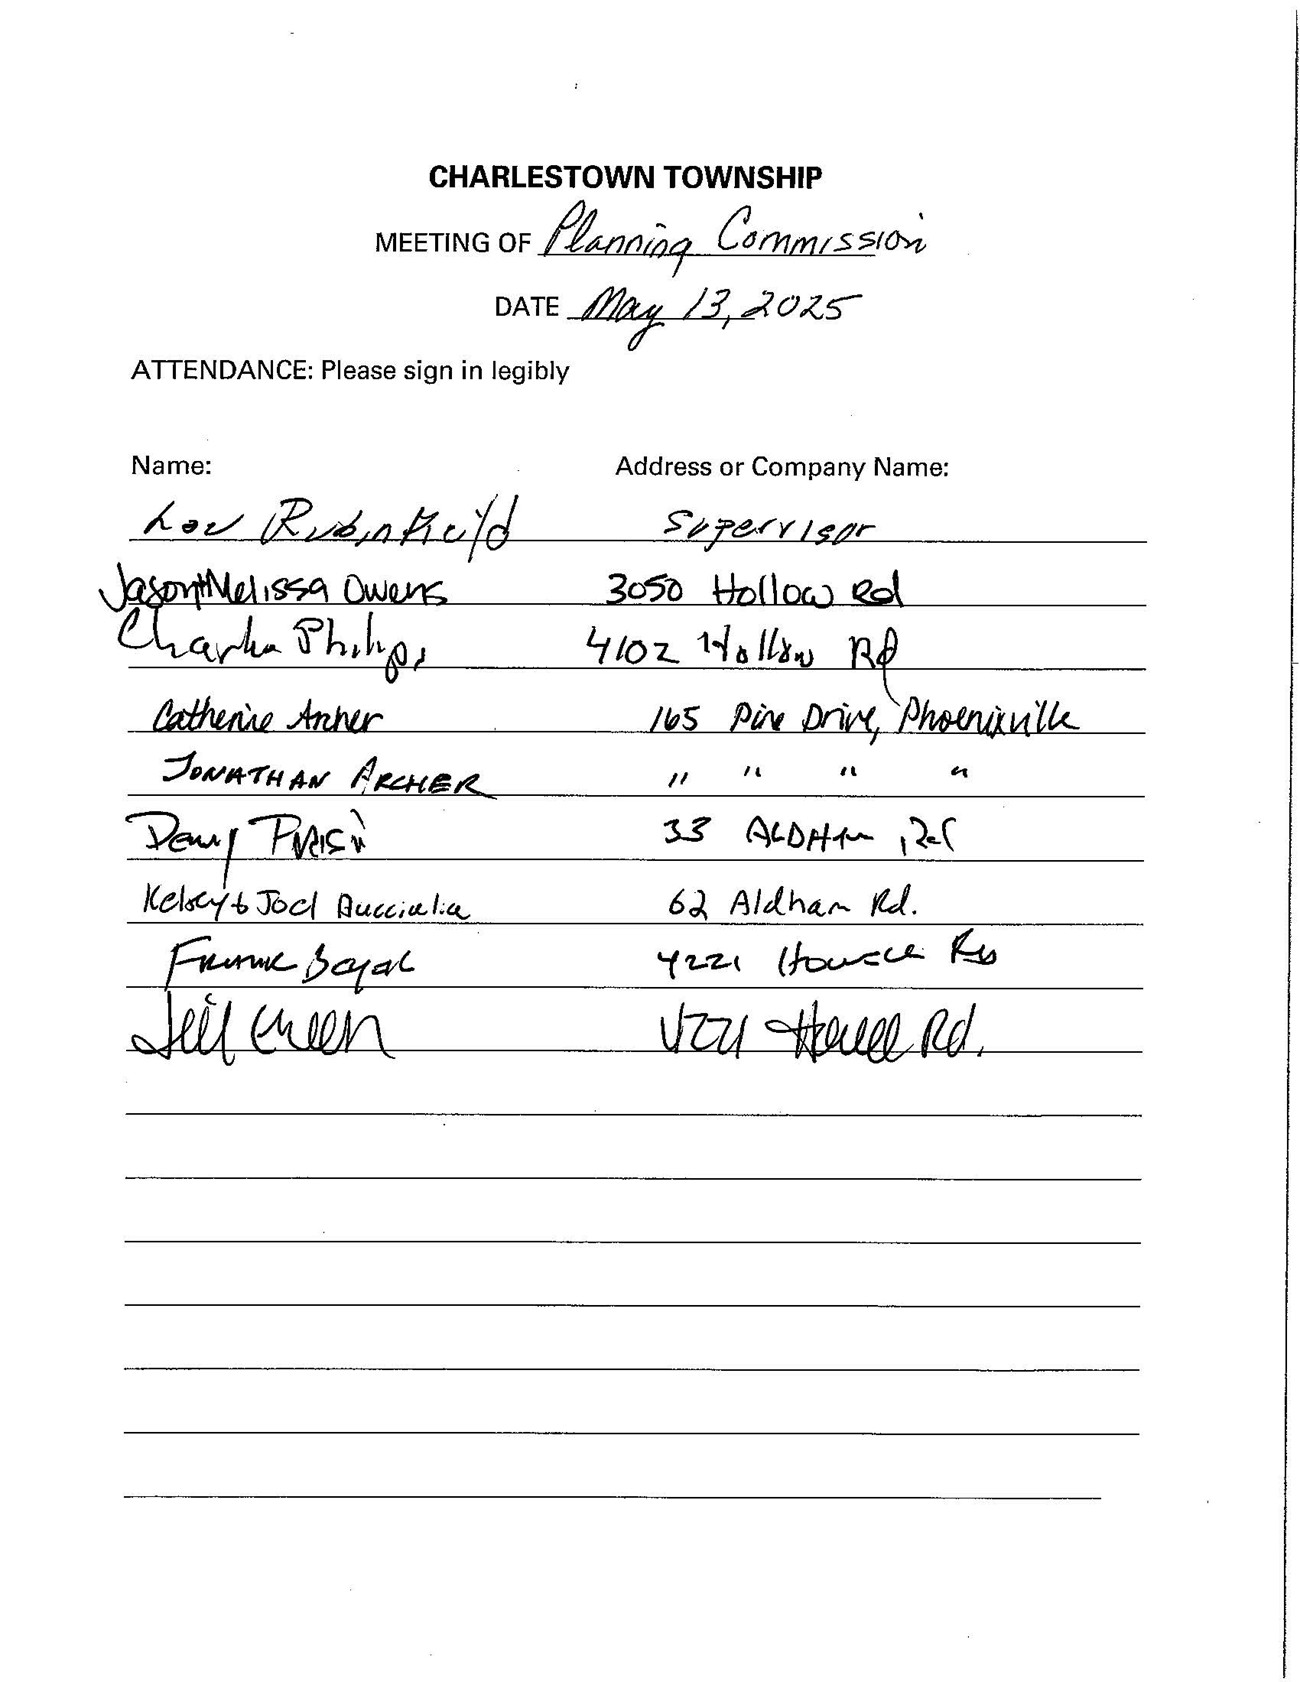 CHARLESTOWN TOWNSHIP
MEETING OF Planning Commission
DATE May 13, 2025
ATTENDANCE: Please sign in legibly
Name: Address or Company Name:
Lou Rubinfield Supervisor
Jason + Melissa Owens 3050 Hollow Rd
Charles Philips 4102 Hollow Rd
Catherine Archer 165 Pine Drive, Phoenixville
JONATHAN ARCHER " " " "
33 ALDHAM Rd
Kelsey & Joel 62 Aldham Rd.
Frank 4221 Howell Rd
Jeil Green 4221 Howell Rd.